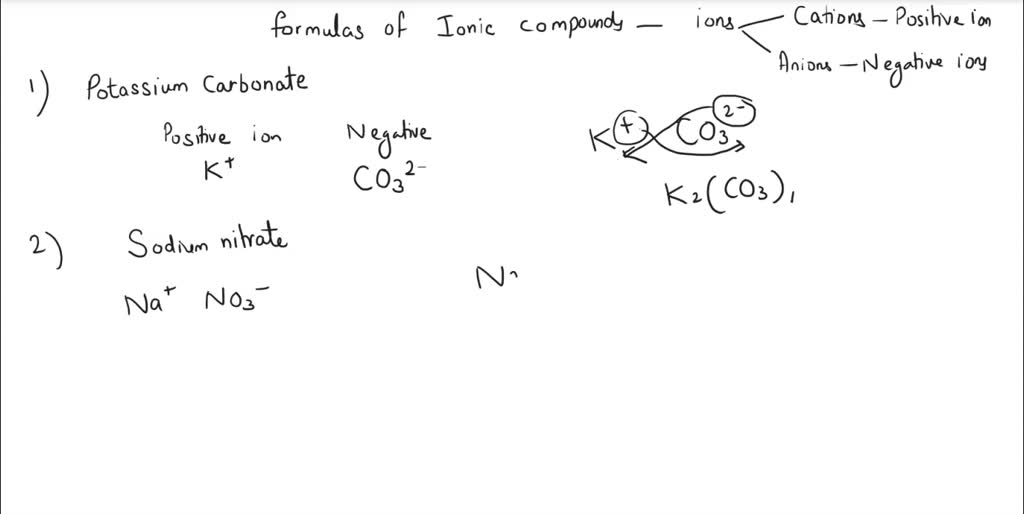 formulas of Ionic compounds — ions Cations – Positive ion
Anions – Negative ions
1) Potassium Carbonate
Positive ion Negative
K⁺ CO₃²⁻
K⁺ CO₃²⁻
K₂(CO₃)₁
2) Sodium nitrate
Na⁺ NO₃⁻